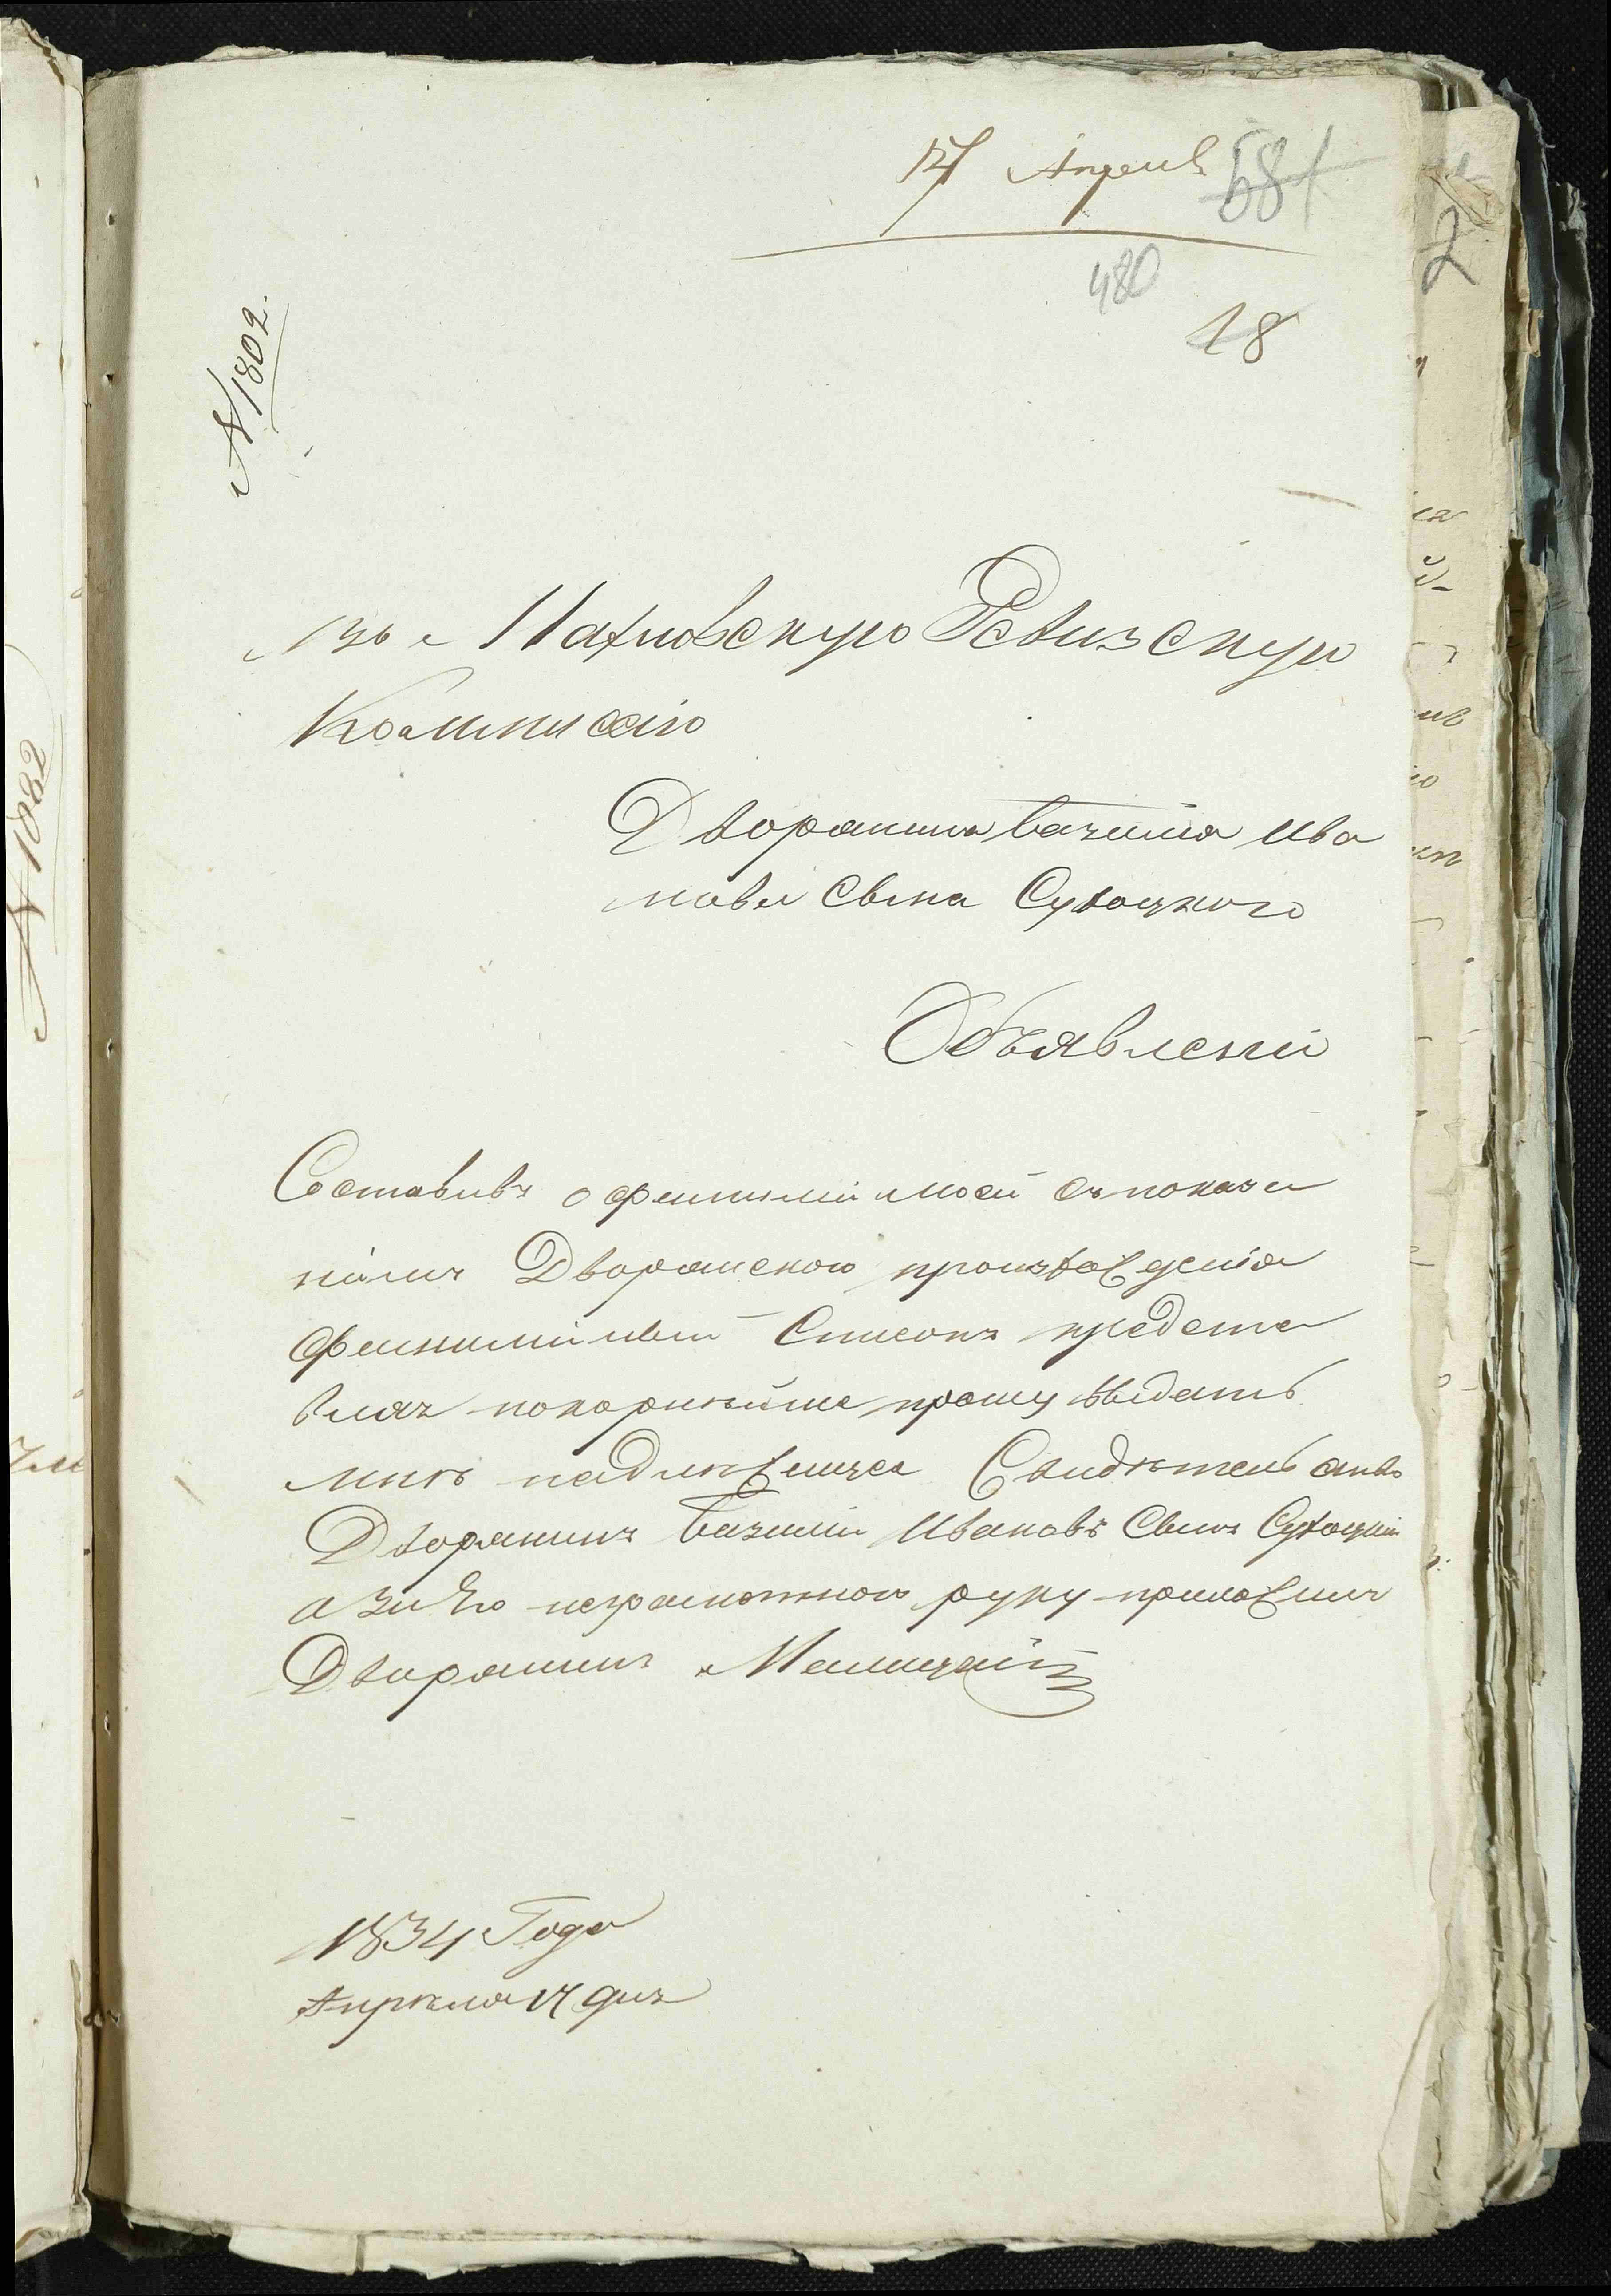 17 Апреля 581
480
18
№ 1802.
Ревизскую
Коммиссію
Дворянина Базилія Ива
нова Сына Сухоцкого
Объявленіе
Составивъ о фамиліи моей съ показа
ніемъ Дворянского произхожденія
фамиліи Списокъ предста
вляя покорнѣйше прошу выдать
мнѣ надлежащее Свидѣтельство
Дворянинъ Базилій Ивановъ Сынъ Сухоцкій
а за Его неграмотного руку приложилъ
Дворянинъ
1834 Года
Апрѣля 17 дня
№ 1082